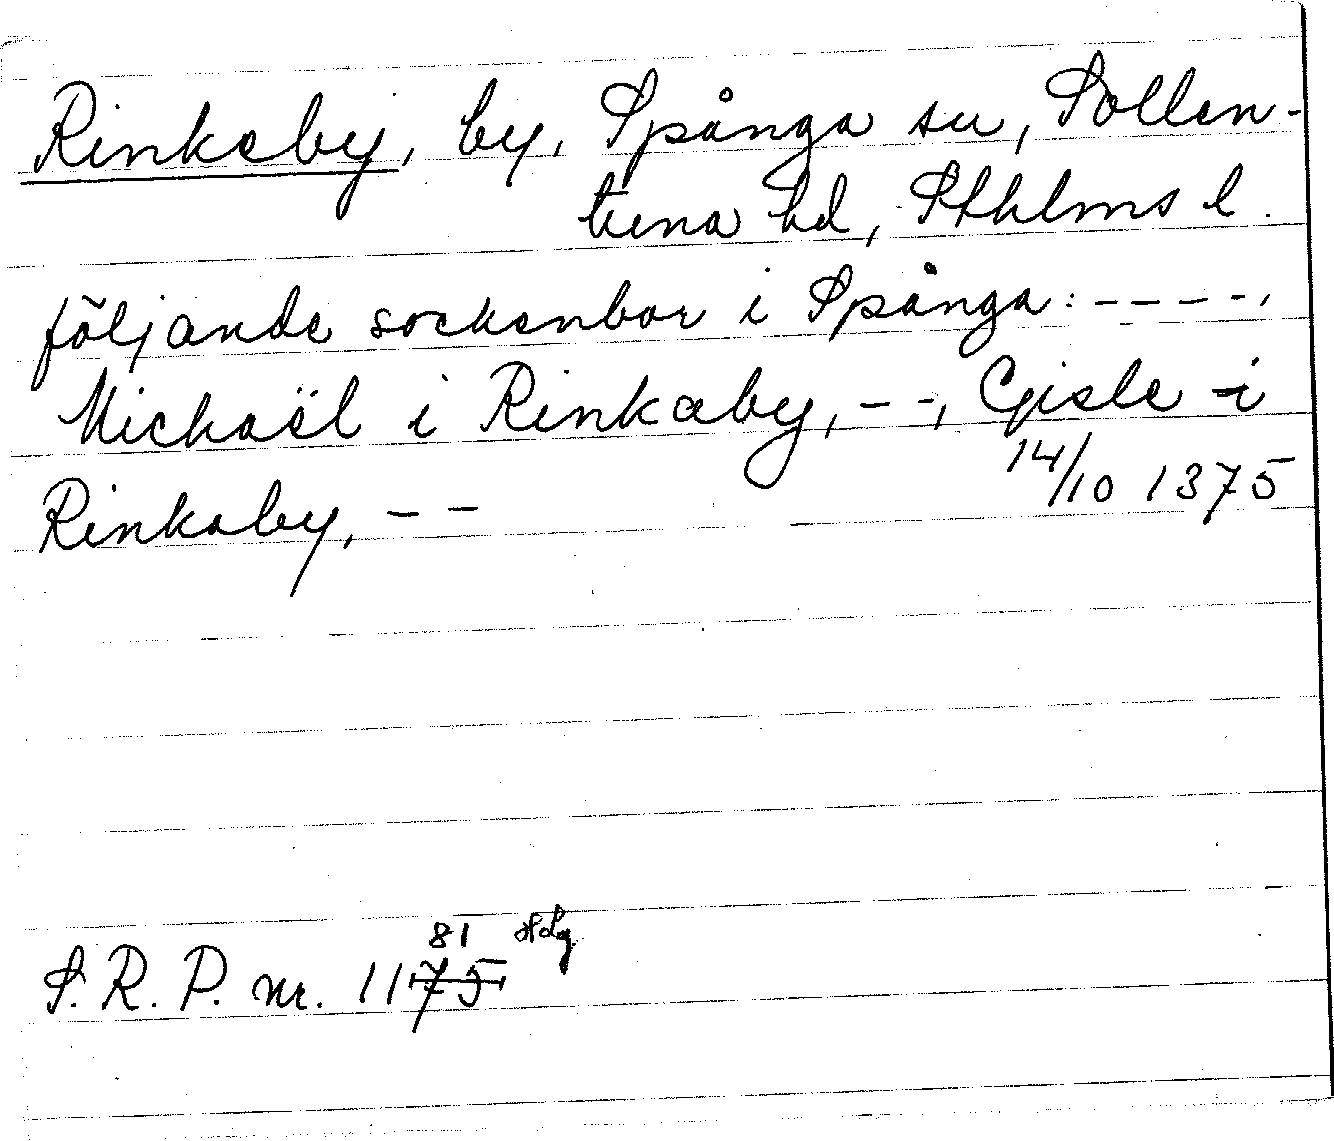 Rinkeby, by, Spånga sn, Sollen-
tuna hd, Sthlms l.
följande sockenbor i Spånga: ----,
Michaël i Rinkaby, --, Gisle i
Rinkaby, -- 14/10 1375
81
S. R. P. nr. 1175